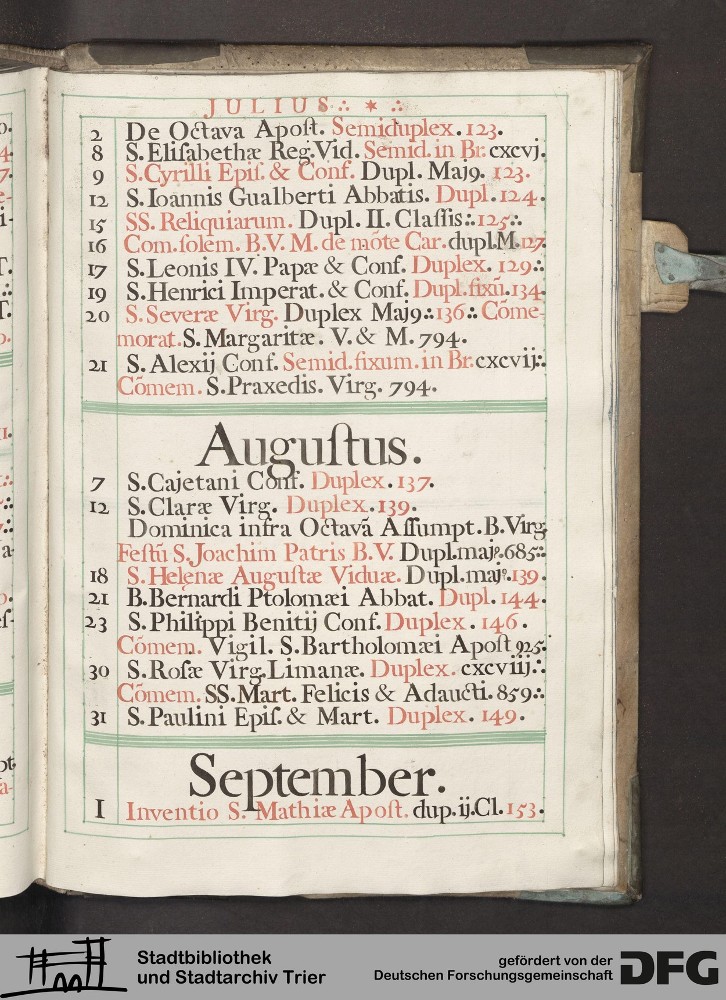 JULIUS ∴ ✶ ∴
2 De Octava Apost. Semiduplex. 123.
8 S. Elisabethæ Reg. Vid. Semid. in Br. cxcvj.
9 S. Cyrilli Epis. & Conf. Dupl. Maj9. 123.
12 S. Ioannis Gualberti Abbatis. Dupl. 124.
15 SS. Reliquiarum. Dupl. II. Classis ∴ 125 ∴
16 Com. solem. B.V.M. de mõte Car. dupl. M. 127.
17 S. Leonis IV. Papæ & Conf. Duplex. 129 ∴
19 S. Henrici Imperat. & Conf. Dupl. fixũ. 134.
20 S. Severæ Virg. Duplex Maj9 ∴ 136 ∴ Cõme-
morat. S. Margaritæ. V. & M. 794.
21 S. Alexij Conf. Semid. fixum. in Br. cxcvij ∴
Cõmem. S. Praxedis. Virg. 794.
Augustus.
7 S. Cajetani Conf. Duplex. 137.
12 S. Claræ Virg. Duplex. 139.
Dominica infra Octavã Assumpt. B. Virg.
Festũ S. Joachim Patris B.V. Dupl. maj9. 685 ∴
18 S. Helenæ Augustæ Viduæ. Dupl. maj9. 139.
21 B. Bernardi Ptolomæi Abbat. Dupl. 144.
23 S. Philippi Benitij Conf. Duplex. 146.
Cõmem. Vigil. S. Bartholomæi Apost 925.
30 S. Rosæ Virg. Limanæ. Duplex. cxcviij ∴
Cõmem. SS. Mart. Felicis & Adaucti. 859 ∴
31 S. Paulini Epis. & Mart. Duplex. 149.
September.
I Inventio S. Mathiæ Apost. dup. ij. Cl. 153.
Stadtbibliothek
und Stadtarchiv Trier
gefördert von der
Deutschen Forschungsgemeinschaft
DFG